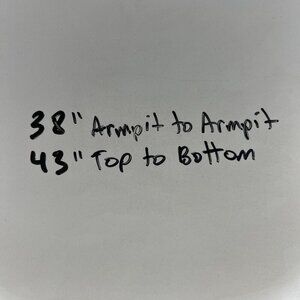 38" Armpit to Armpit
43" Top to Bottom